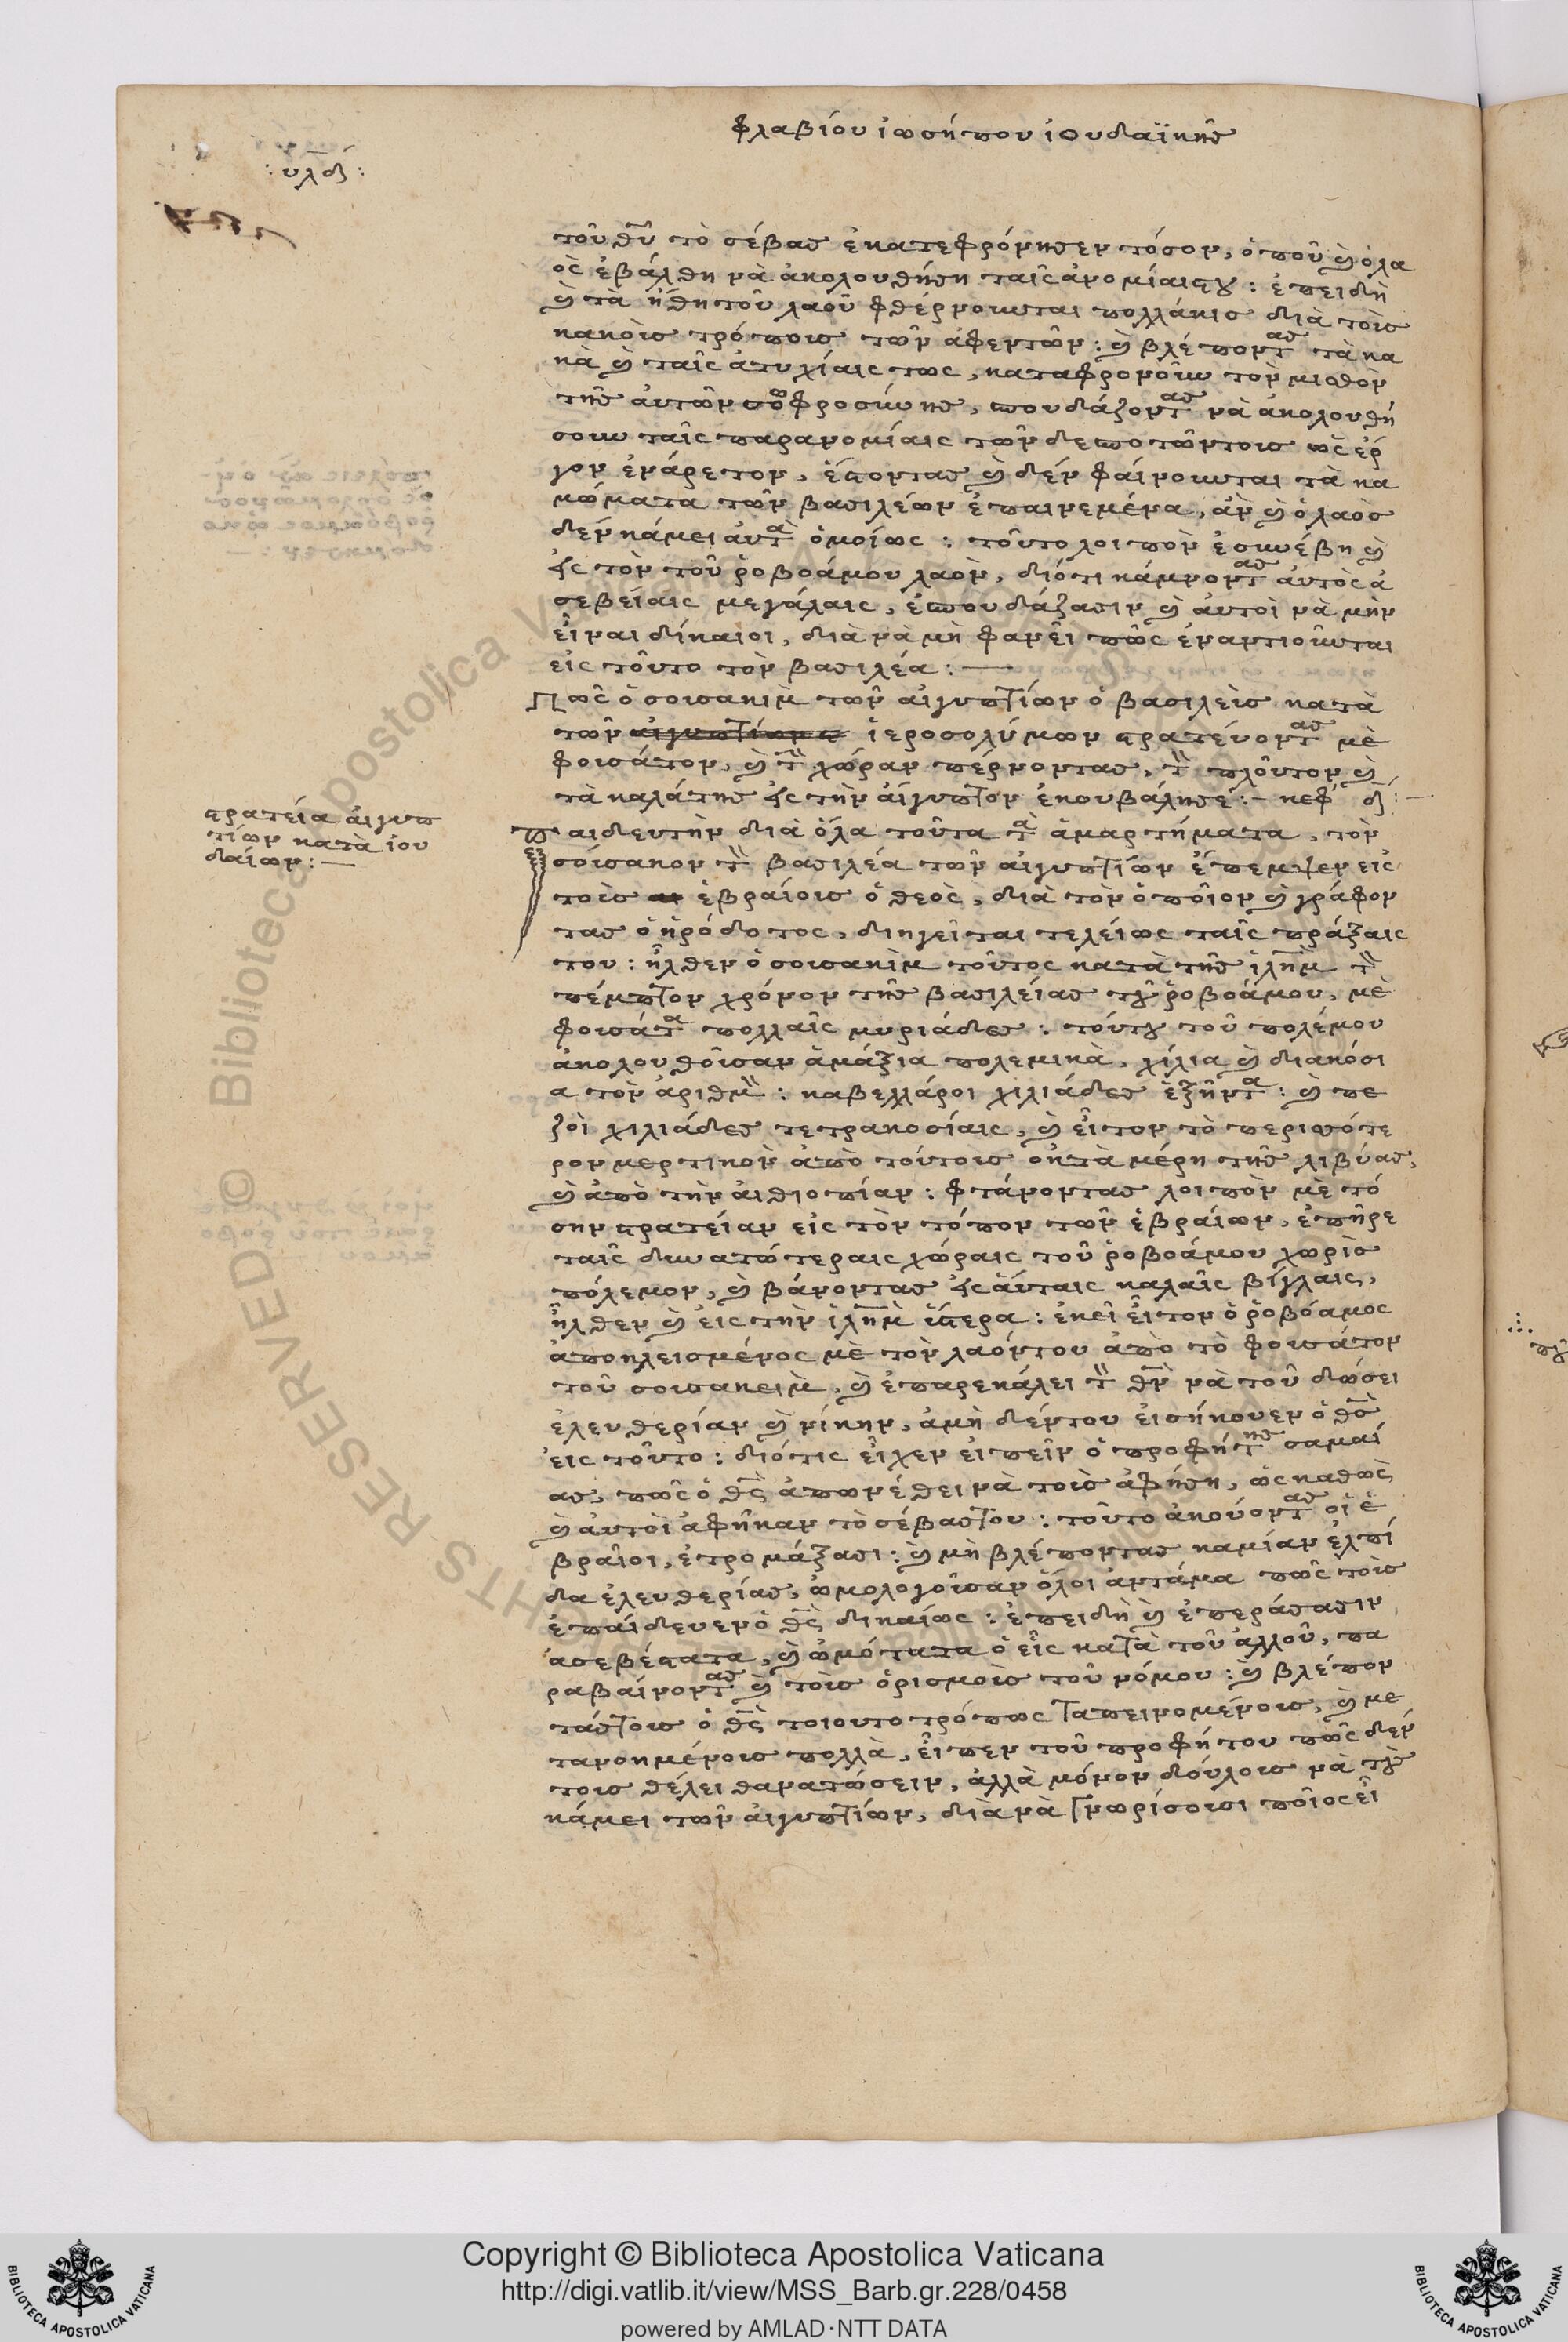 φλαβίου ἰωσήπου ἰουδαϊκῆς
: υλδ :
τοῦ θῡ τὸ σέβας ἐκατεφρόνησεν τόσον, ὁποῦ καὶ ὁ λα
ὸς ἐβάλθη νὰ ἀκολουθήση ταῖς ἀνομίαις του : ἐπειδὴ
καὶ τὰ ἤθη τοῦ λαοῦ φθέρνουνται πολλάκις διὰ τοὺς
κακοὺς τρόπους τῶν ἀφεντῶν : καὶ βλέποντας τὰ κα
κὰ καὶ ταῖς ἀτυχίαις τως, καταφρονοῦν τὸν μισθὸν
τῆς αὐτῶν σωφροσύνης, σπουδάζοντας νὰ ἀκολουθή
σουν ταῖς παρανομίαις τῶν δεσποτῶν τους ὡς ἔρ
γον ἐνάρετον, ἔστοντας καὶ δὲν φαίνουνται τὰ κα
μώματα τῶν βασιλέων ἐπαινεμένα, ἂν καὶ ὁ λαὸς
δὲν κάμει αὐτὰ ὁμοίως : τοῦτο λοιπὸν ἐσυνέβη καὶ
εἰς τὸν τοῦ ῥοβοάμου λαὸν, διότι κάμνοντας αὐτὸς ἀ
σεβείαις μεγάλαις, ἐσπουδάζασιν καὶ αὐτοὶ νὰ μὴν
εἶναι δίκαιοι, διὰ νὰ μὴ φανεῖ πῶς ἐναντιοῦνται
εἰς τοῦτο τὸν βασιλέα : —
Πῶς ὁ σουσακὶμ τῶν αἰγυπτίων ὁ βασιλεὺς κατὰ
τῶν αἰγυπτίων ἱεροσολύμων στρατεύοντας μὲ
φουσάτον, καὶ τὴν χώραν πέρνοντας, τὸν πλοῦτον καὶ
τὰ καλάτης εἰς τὴν αἴγυπτον ἐκουβάλησε : – κεφ δ : —
στρατεία αἰγυπ
τίων κατὰ ἰου
δαίων : —
παιδευτὴν διὰ ὅλα τοῦτα τὰ ἁμαρτήματα, τὸν
σούσακον τὸν βασιλέα τῶν αἰγυπτίων ἔπεμψεν εἰς
τοὺς ἑβραίους ὁ θεὸς, διὰ τὸν ὁποῖον καὶ γράφον
τας ὁ ἡρόδοτος, διηγεῖται τελείως ταῖς πράξαις
του : ἦλθεν ὁ σουσακὶμ τοῦτος κατὰ τῆς ἱλῆμ τὸν
πέμπτον χρόνον τῆς βασιλείας τοῦ ῥοβοάμου, μὲ
φουσάτα πολλαῖς μυριάδες : τούτου τοῦ πολέμου
ἀκολουθοῦσαν ἁμάξια πολεμικὰ, χίλια καὶ διακόσι
α τὸν ἀριθμὸν : καβελλάροι χιλιάδες ἑξῆντα : καὶ πε
ζοὶ χιλιάδες τετρακοσίαις, καὶ εἶτον τὸ περισσότε
ρον μερτικὸν ἀπὸ τούτους ἐκ τὰ μέρη τῆς λιβύας,
καὶ ἀπὸ τὴν αἰθιοπίαν : φτάνοντας λοιπὸν μὲ τό
σην στρατείαν εἰς τὸν τόπον τῶν ἑβραίων, ἐπῆρε
ταῖς δυνατώτεραις χώραις τοῦ ῥοβοάμου χωρὶς
πόλεμον, καὶ βάνοντας εἰς αὐταις καλαῖς βίγλαις,
ἦλθεν καὶ εἰς τὴν ἱλῆμ ὕστερα : ἐκεῖ εἶτον ὁ ῥοβόαμος
ἀποκλεισμένος μὲ τὸν λαόν του ἀπὸ τὸ φουσάτον
τοῦ σουσακεὶμ, καὶ ἐπαρεκάλει τὸν θν̄ νὰ τοῦ δώσει
ἐλευθερίαν καὶ νίκην, ἀμὴ δέν του εἰσήκουεν ὁ θς̄
εἰς τοῦτο : διότις εἶχεν εἰπεῖν ὁ προφήτης σαμαί
ας, πῶς ὁ θς̄ ἀποκέθει νὰ τοὺς ἀφήση, ὡς καθὼς
καὶ αὐτοὶ ἀφῆκαν τὸ σέβας του : τοῦτο ἀκούοντας οἱ ἑ
βραῖοι, ἐτρομάξασι : καὶ μὴ βλέποντας καμίαν ἐλπί
δα ἐλευθερίας, ὡμολογοῦσαν ὅλοι ἀντάμα πῶς τοὺς
ἐπαίδευεν ὁ θς̄ δικαίως : ἐπειδὴ καὶ ἐπεράσασιν
ἀσεβέστατα, καὶ ὠμότατα ὁ εἷς κατὰ τοῦ ἀλλοῦ, πα
ραβαίνοντας καὶ τοὺς ὁρισμοὺς τοῦ νόμου : καὶ βλέπον
τάς τους ὁ θς̄ τοιουτοτρόπως ταπεινομένους, καὶ με
τανοημένους πολλὰ, εἶπεν τοῦ προφήτου πῶς δέν
τους θέλει θανατώσειν, ἀλλὰ μόνον δούλους νὰ τοὺς
κάμει τῶν αἰγυπτίων, διὰ νὰ γνωρίσουσι ποῖος εἶ
Copyright © Biblioteca Apostolica Vaticana
http://digi.vatlib.it/view/MSS_Barb.gr.228/0458
powered by AMLAD·NTT DATA